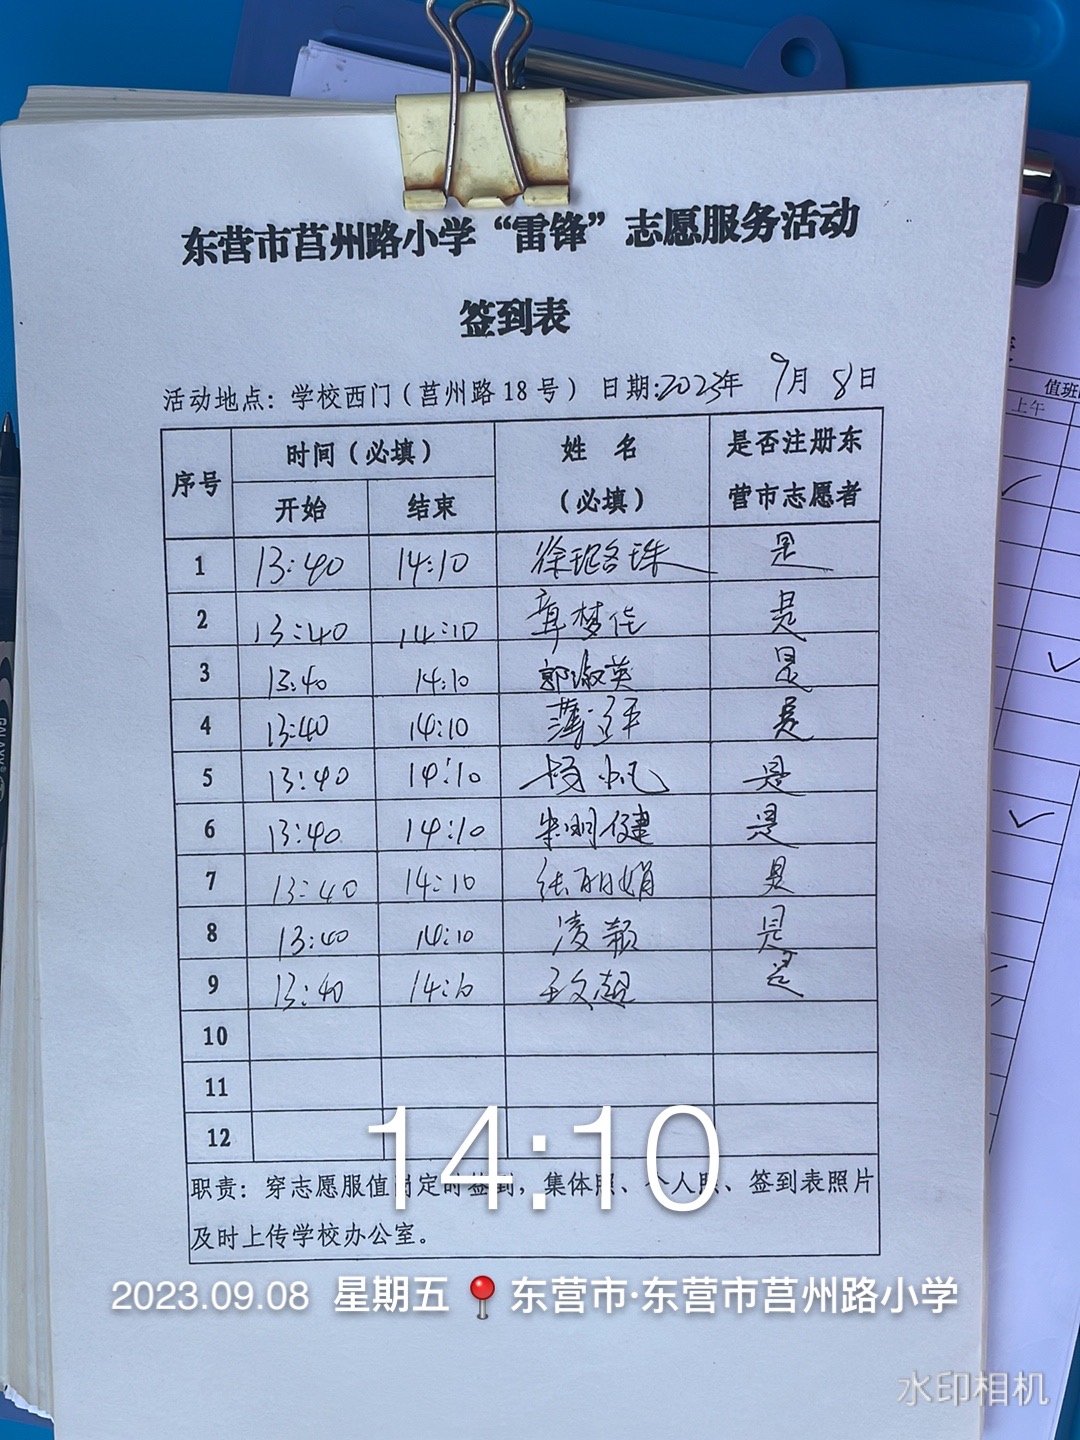 东营市莒州路小学“雷锋”志愿服务活动
签到表
活动地点：学校西门（莒州路18号） 日期:2023年 9月 8日
序号 时间（必填） 姓 名（必填） 是否注册东营市志愿者
开始 结束
1 13:40 14:10 徐琨洺珠 是
2 13:40 14:10 章梦佳 是
3 13:40 14:10 郭淑英 是
4 13:40 14:10 薄 是
5 13:40 14:10 杨小凡 是
6 13:40 14:10 朱明健 是
7 13:40 14:10 张丽娟 是
8 13:40 14:10 凌颖 是
9 13:40 14:10 王文超 是
10
11
12
职责：穿志愿服值岗定时签到，集体照、个人照、签到表照片
及时上传学校办公室。
14:10
2023.09.08 星期五 东营市·东营市莒州路小学
水印相机
值班
上午